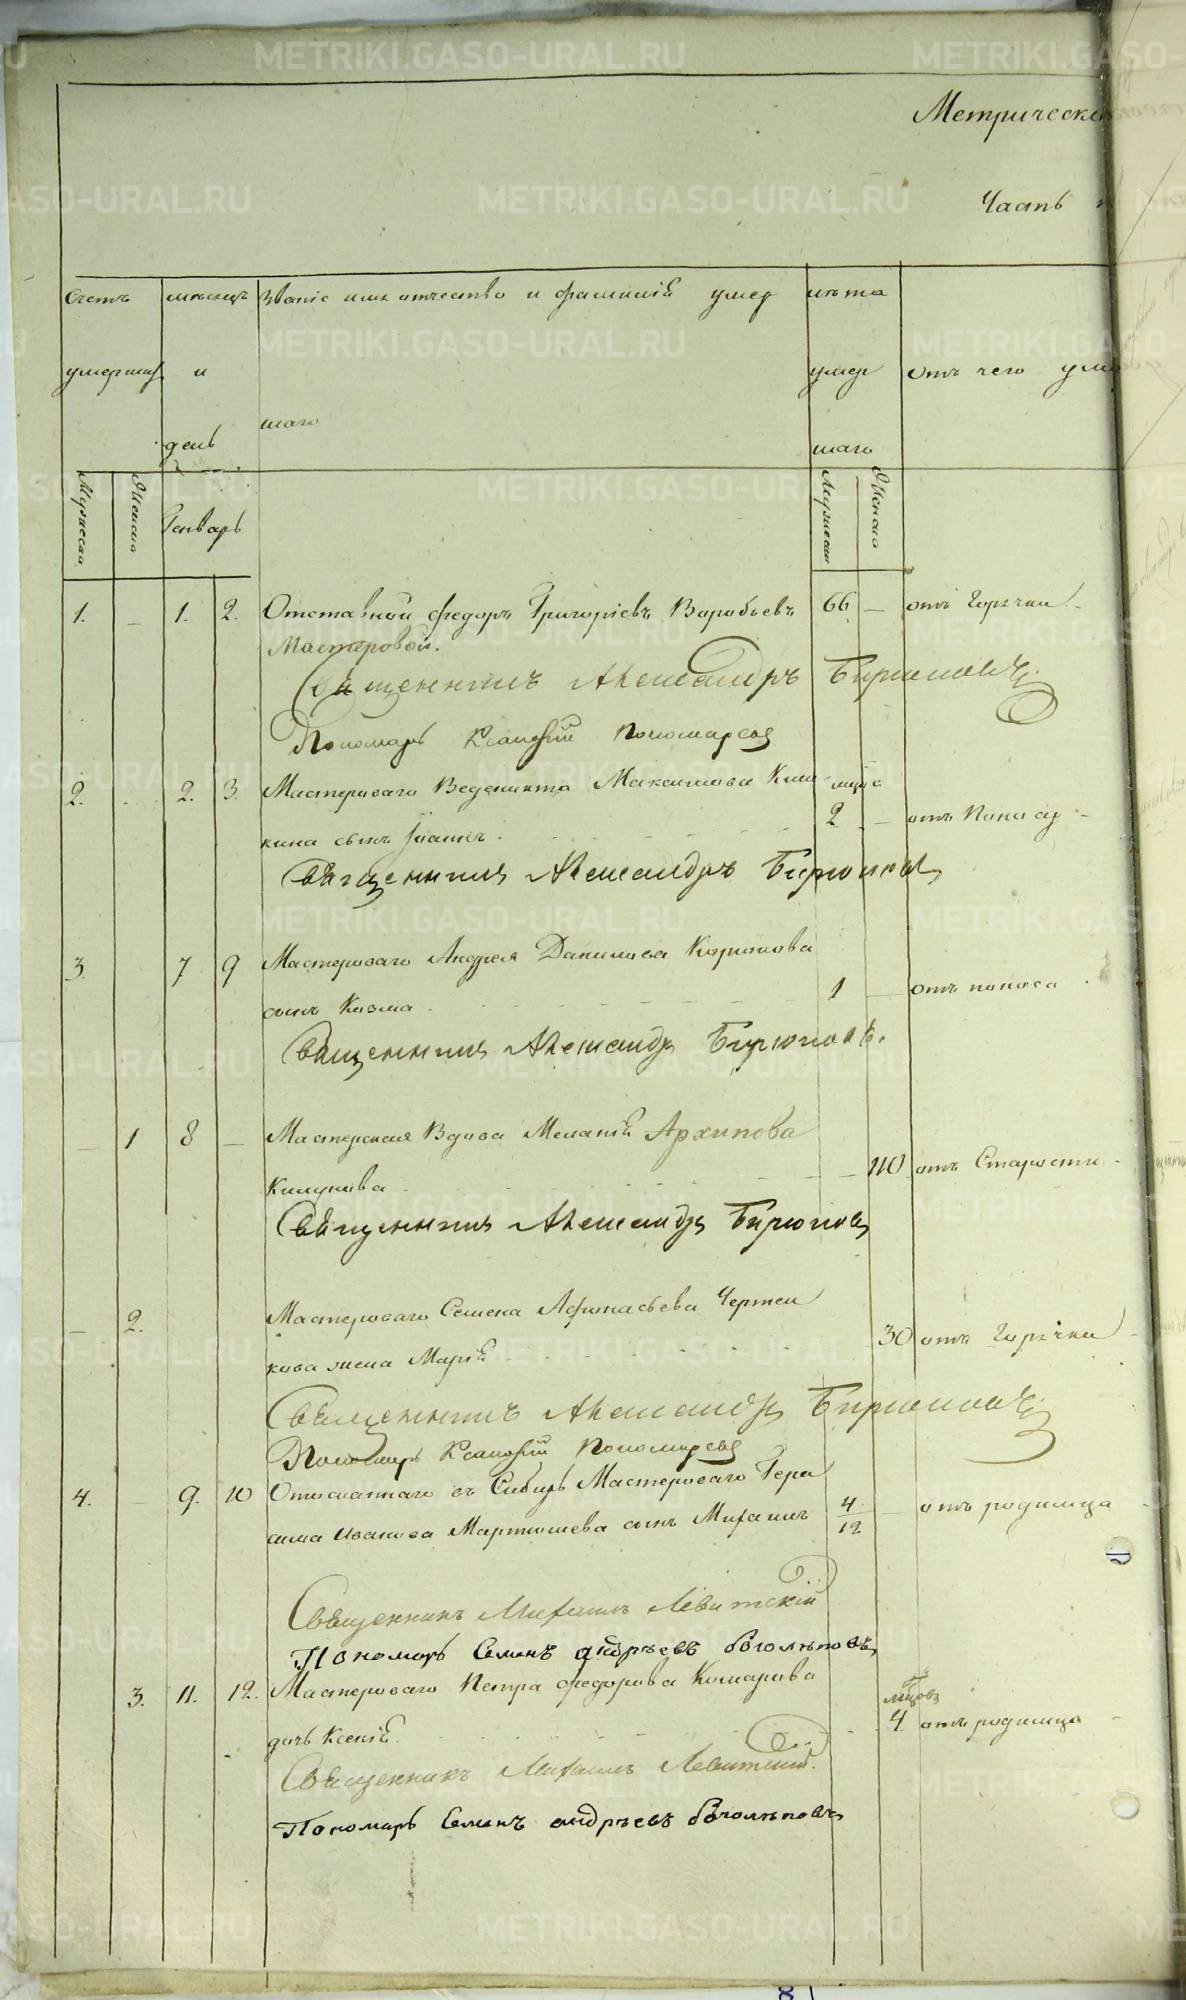 Метрическ
Часть
Счетъ
умершихъ
Мужеска
Женска
месяцъ
и
день
Генварь
Званіе имя отчество и фамилія умер
шаго
лѣта
умер
шаго
Мужеска
Женска
отъ чего
1. – 1. 2. Отставной Федоръ Григоріевъ Воробьевъ 66 – отъ Горячки
Мастеровой.
Священникъ Александръ Бирюковъ.
Пономарь Пономаревъ
2. 2. 3. Мастероваго Веденикта Максимова
кина сынъ Іоаннъ. 2 – отъ Поносу
Священникъ Александръ Бирюковъ
3. 7 9 Мастероваго Андрея Данилова
сынъ Козма. 1 – отъ поноса
Священникъ Александръ Бирюковъ.
– 1 8 – Мастерская Вдова Меланія Архипова
110 отъ Старости
Священникъ Александръ Бирюковъ
– 2. Мастероваго Семена Афонасьева
кова жена Марія 30 отъ Горячки
Священникъ Александръ Бирюковъ.
Пономарь Пономаревъ
4. – 9. 10 Отосланнаго въ Сибирь Мастероваго Гера
сима Иванова Мартюшева сынъ Михаилъ 4/12 – отъ родимца
Священникъ Михаилъ Левитскій
Пономарь Семенъ андрѣевъ боголѣповъ
3. 11. 12. Мастероваго Петра Федорова Комарова
дочь Ксенія. 4 отъ родимца
Священникъ Михаилъ Левитскій.
Пономарь Семенъ андрѣевъ боголѣповъ
METRIKI.GASO-URAL.RU